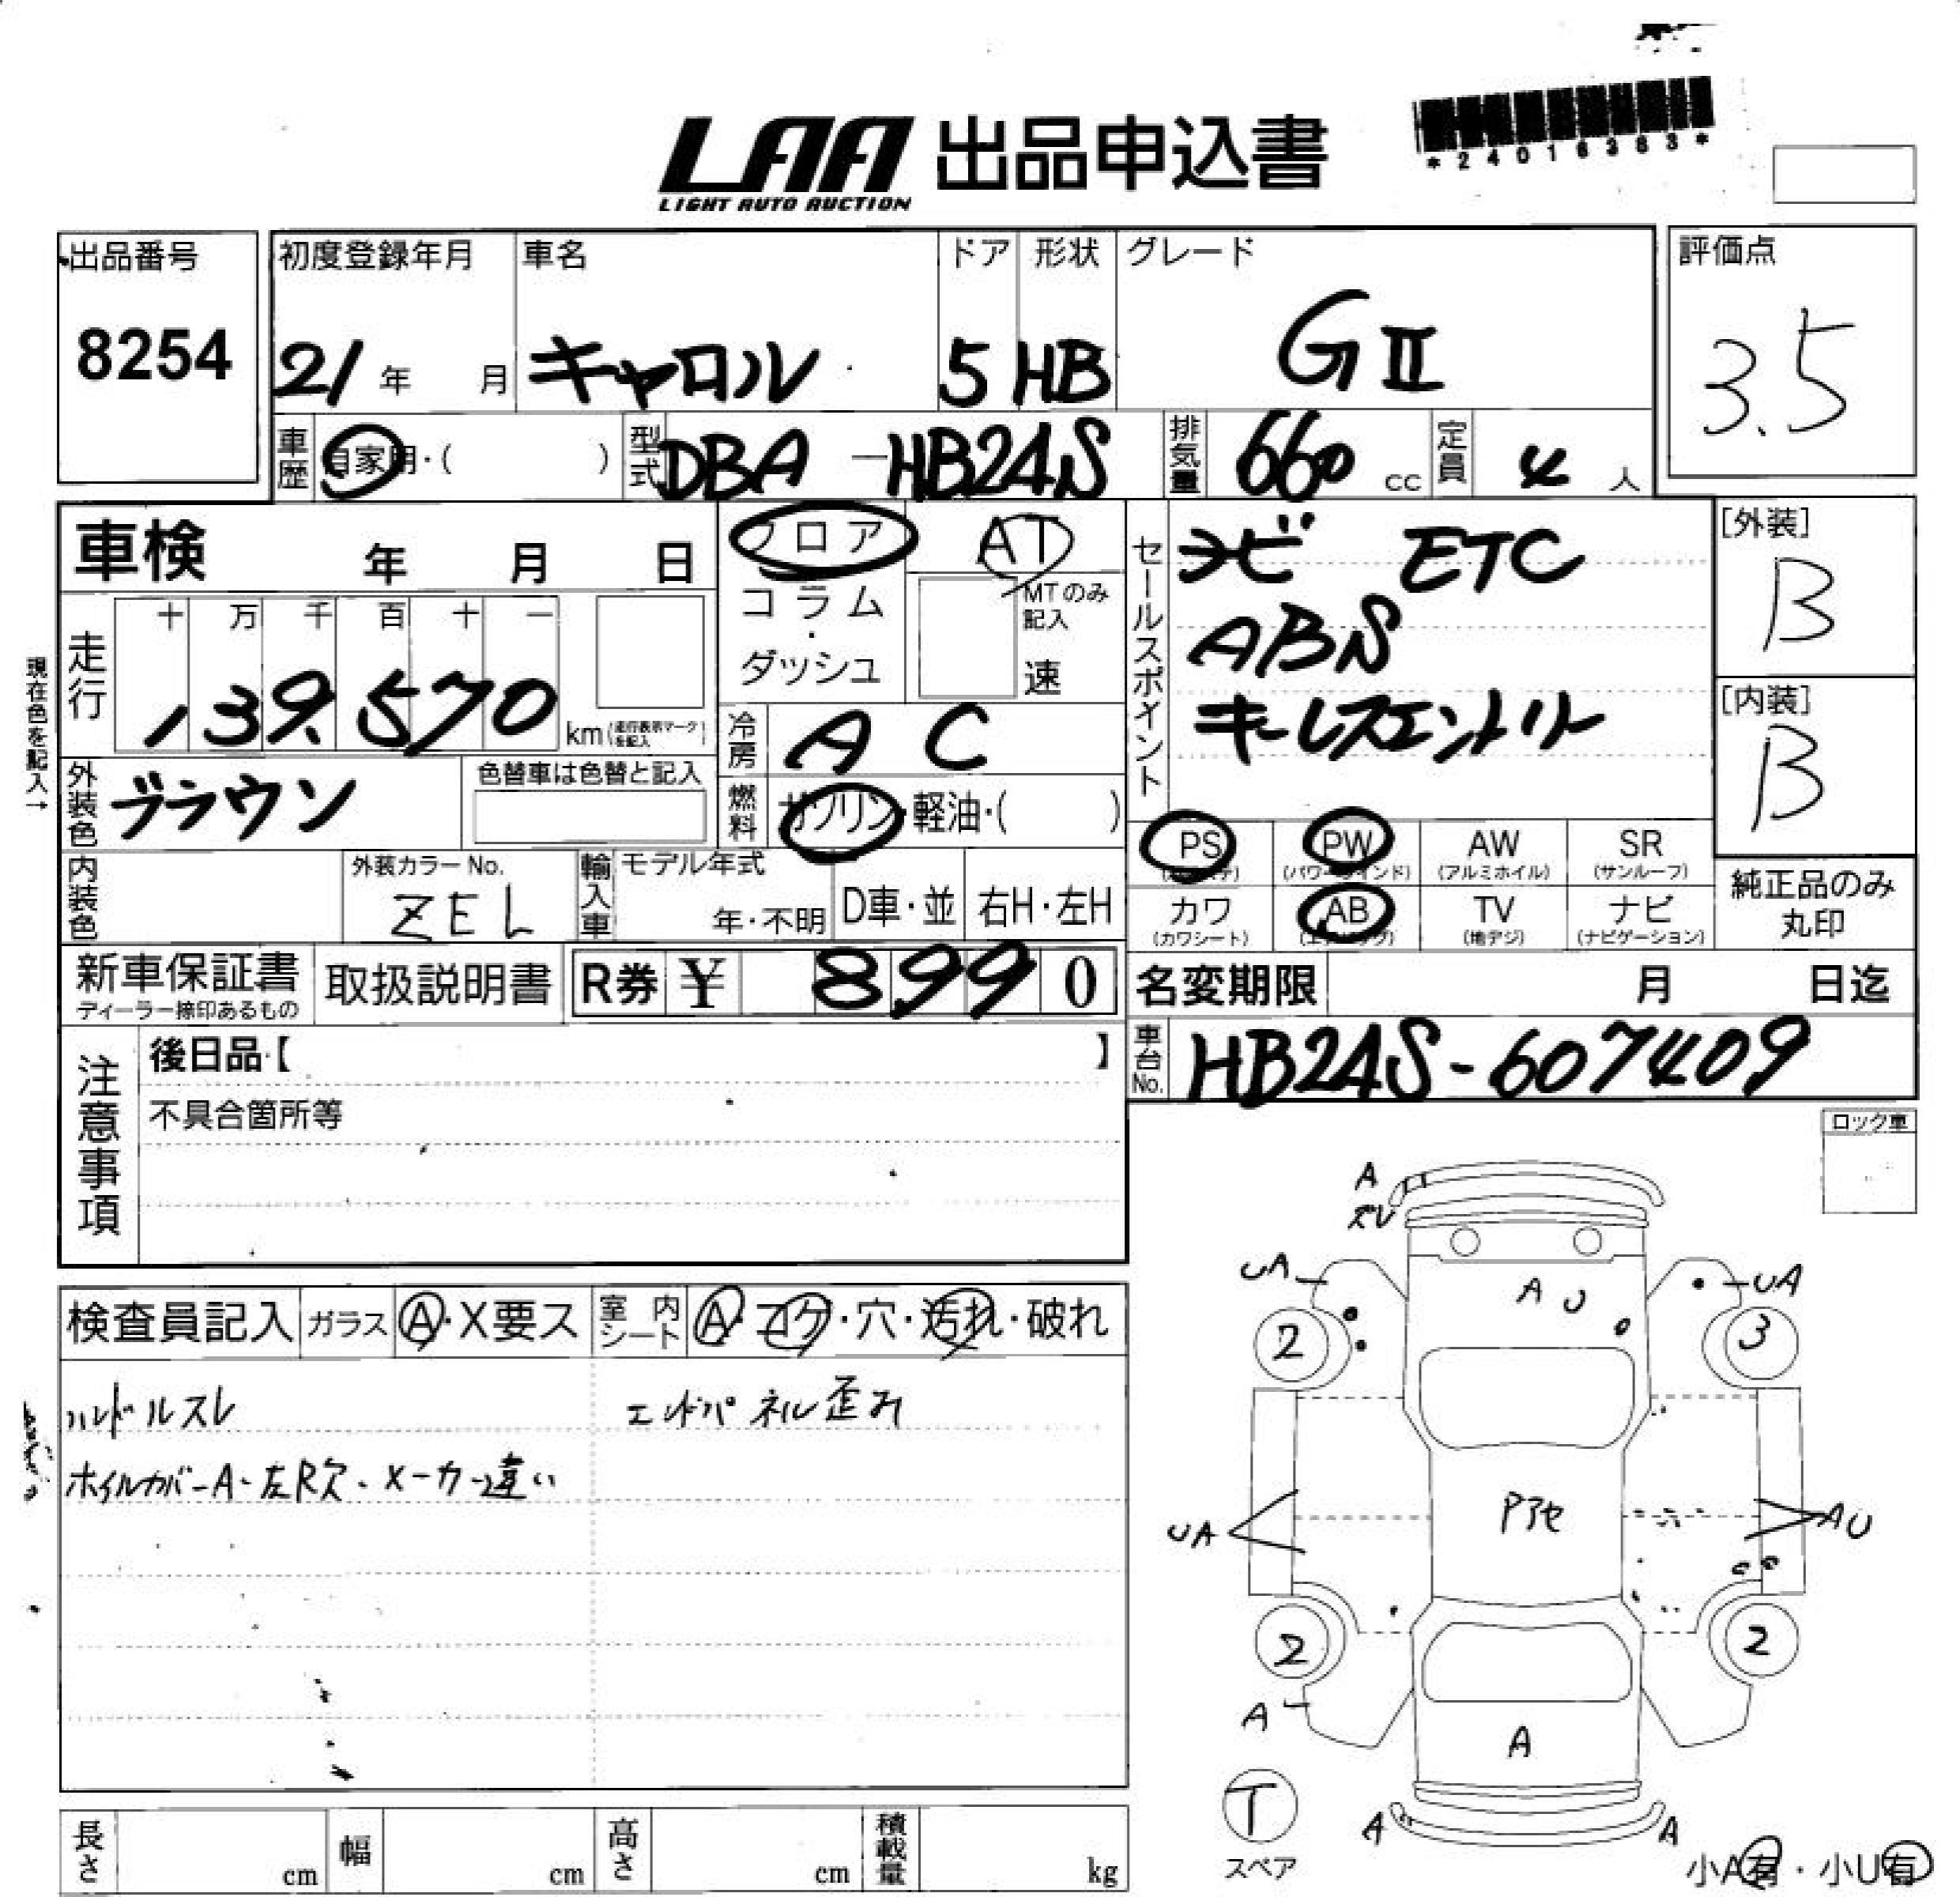 *24016363*
LAA 出品申込書
LIGHT AUTO AUCTION
出品番号 初度登録年月 車名 ドア 形状 グレード 評価点
8254 21年 月 キャロル 5 HB GⅡ 3.5
車歴 自家用・( ) 型式 DBA-HB24S 排気量 660 cc 定員 4 人
車検 年 月 日 フロア AT セールスポイント ナビ ETC [外装]
走行 十 万 千 百 十 一 コラム・ダッシュ MTのみ記入 速 ABS B
139,570 km(走行表示マークを記入) キーレスエントリー [内装]
現在色を記入→
冷房 A C B
外装色 ブラウン 色替車は色替と記入 燃料 ガソリン・軽油・( )
PS (パワステ) PW (パワーウインド) AW (アルミホイル) SR (サンルーフ)
内装色 外装カラーNo. ZEL 輸入車 モデル年式 年・不明 D車・並 右H・左H
カワ (カワシート) AB (エアバッグ) TV (地デジ) ナビ (ナビゲーション) 純正品のみ丸印
新車保証書 ディーラー捺印あるもの 取扱説明書 R券 ¥ 8990 名変期限 月 日迄
注意事項 後日品【 】 車台No. HB24S-607409
不具合箇所等
ロック車
A
ズレ
UA UA
A U
2 3
検査員記入 ガラス A・X要ス 室内シート A・コゲ・穴・汚れ・破れ
ハンドルスレ エンドパネル歪み
ホイルカバーA・左R欠・メーカー違い
UA Pアセ AU
2 2
A
A
T
スペア
A A
長さ cm 幅 cm 高さ cm 積載量 kg
小A有・小U有